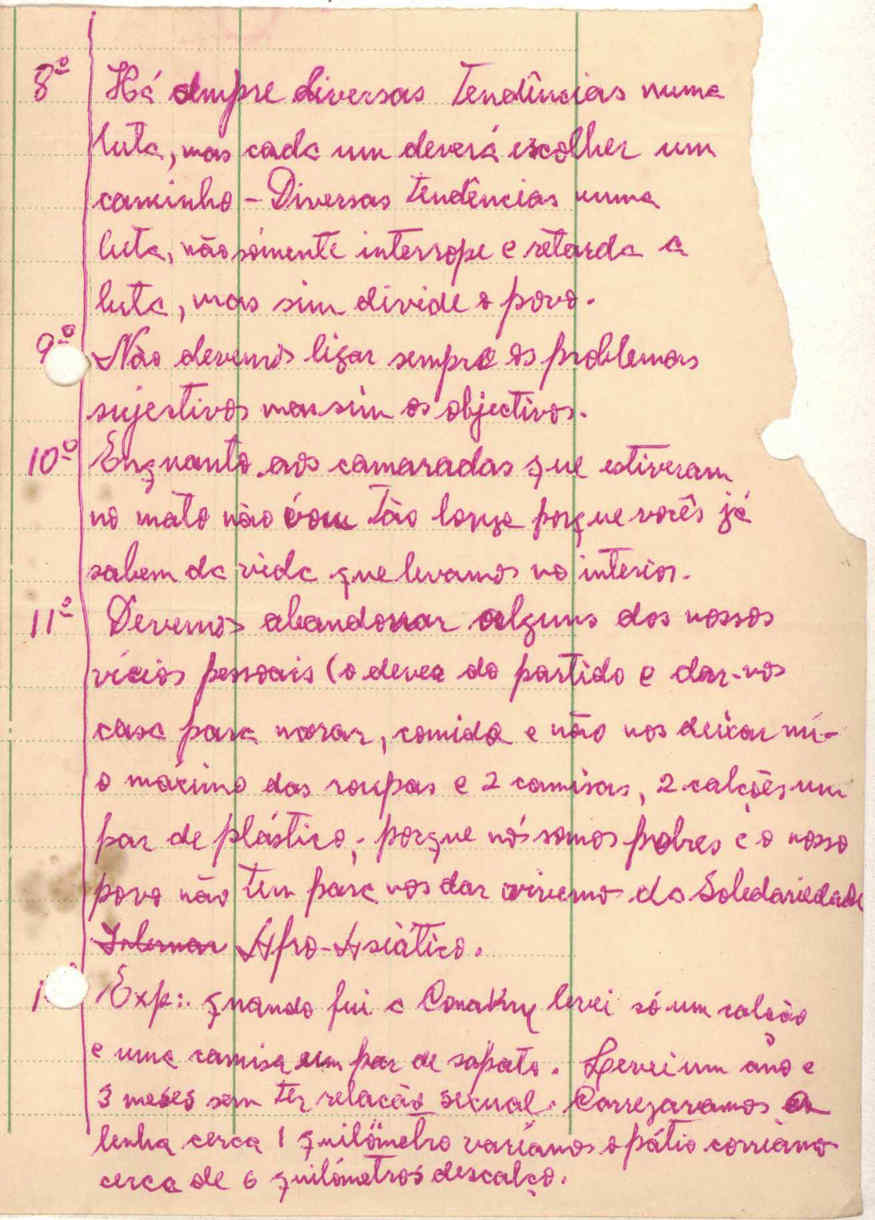 8º Há sempre diversas Tendências numa
luta, mas cada um deverá escolher um
caminho - Diversas tendências numa
luta, não sómente interrope e retarda a
luta, mas sim divide o povo.
9º Não devemos ligar sempre os problemas
sujestivos mas sim os objectivos.
10º Enquanto aos camaradas que estiveram
no mato não vou Tão longe porque vocês já
sabem da vida que levamos no interior.
11º Devemos abandonar alguns dos nossos
vícios pessoais (o dever do partido e dar-nos
casa para morar, comida e não nos deixar nú-
o máximo das roupas e 2 camisas, 2 calções um
par de plástico; porque nós somos pobres e o nosso
povo não Tem para nos dar vivemos da Soledariedade
Afro-Asiático.
1 Exp:. quando fui a Conakry levei só um calção
e uma camisa um par de sapato. Levei um ano e
3 meses sem ter relacão sexual. Carregaramos a
lenha cerca 1 quilómetro varíamos o pátio corríamos
cerca de 6 quilómetros descalço.